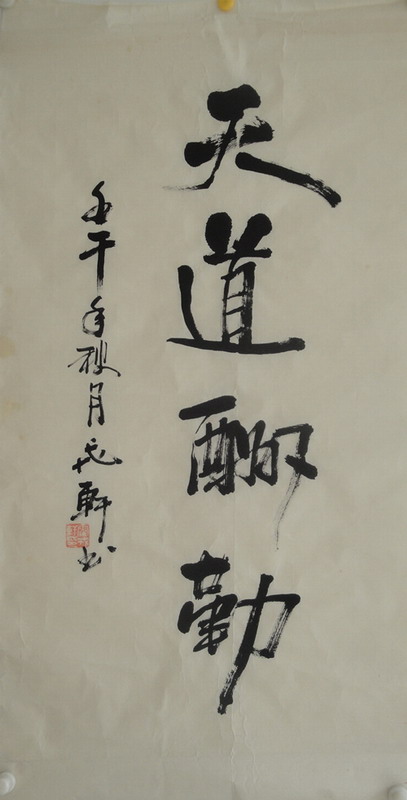 天道酬勤
壬午年秋月軒书